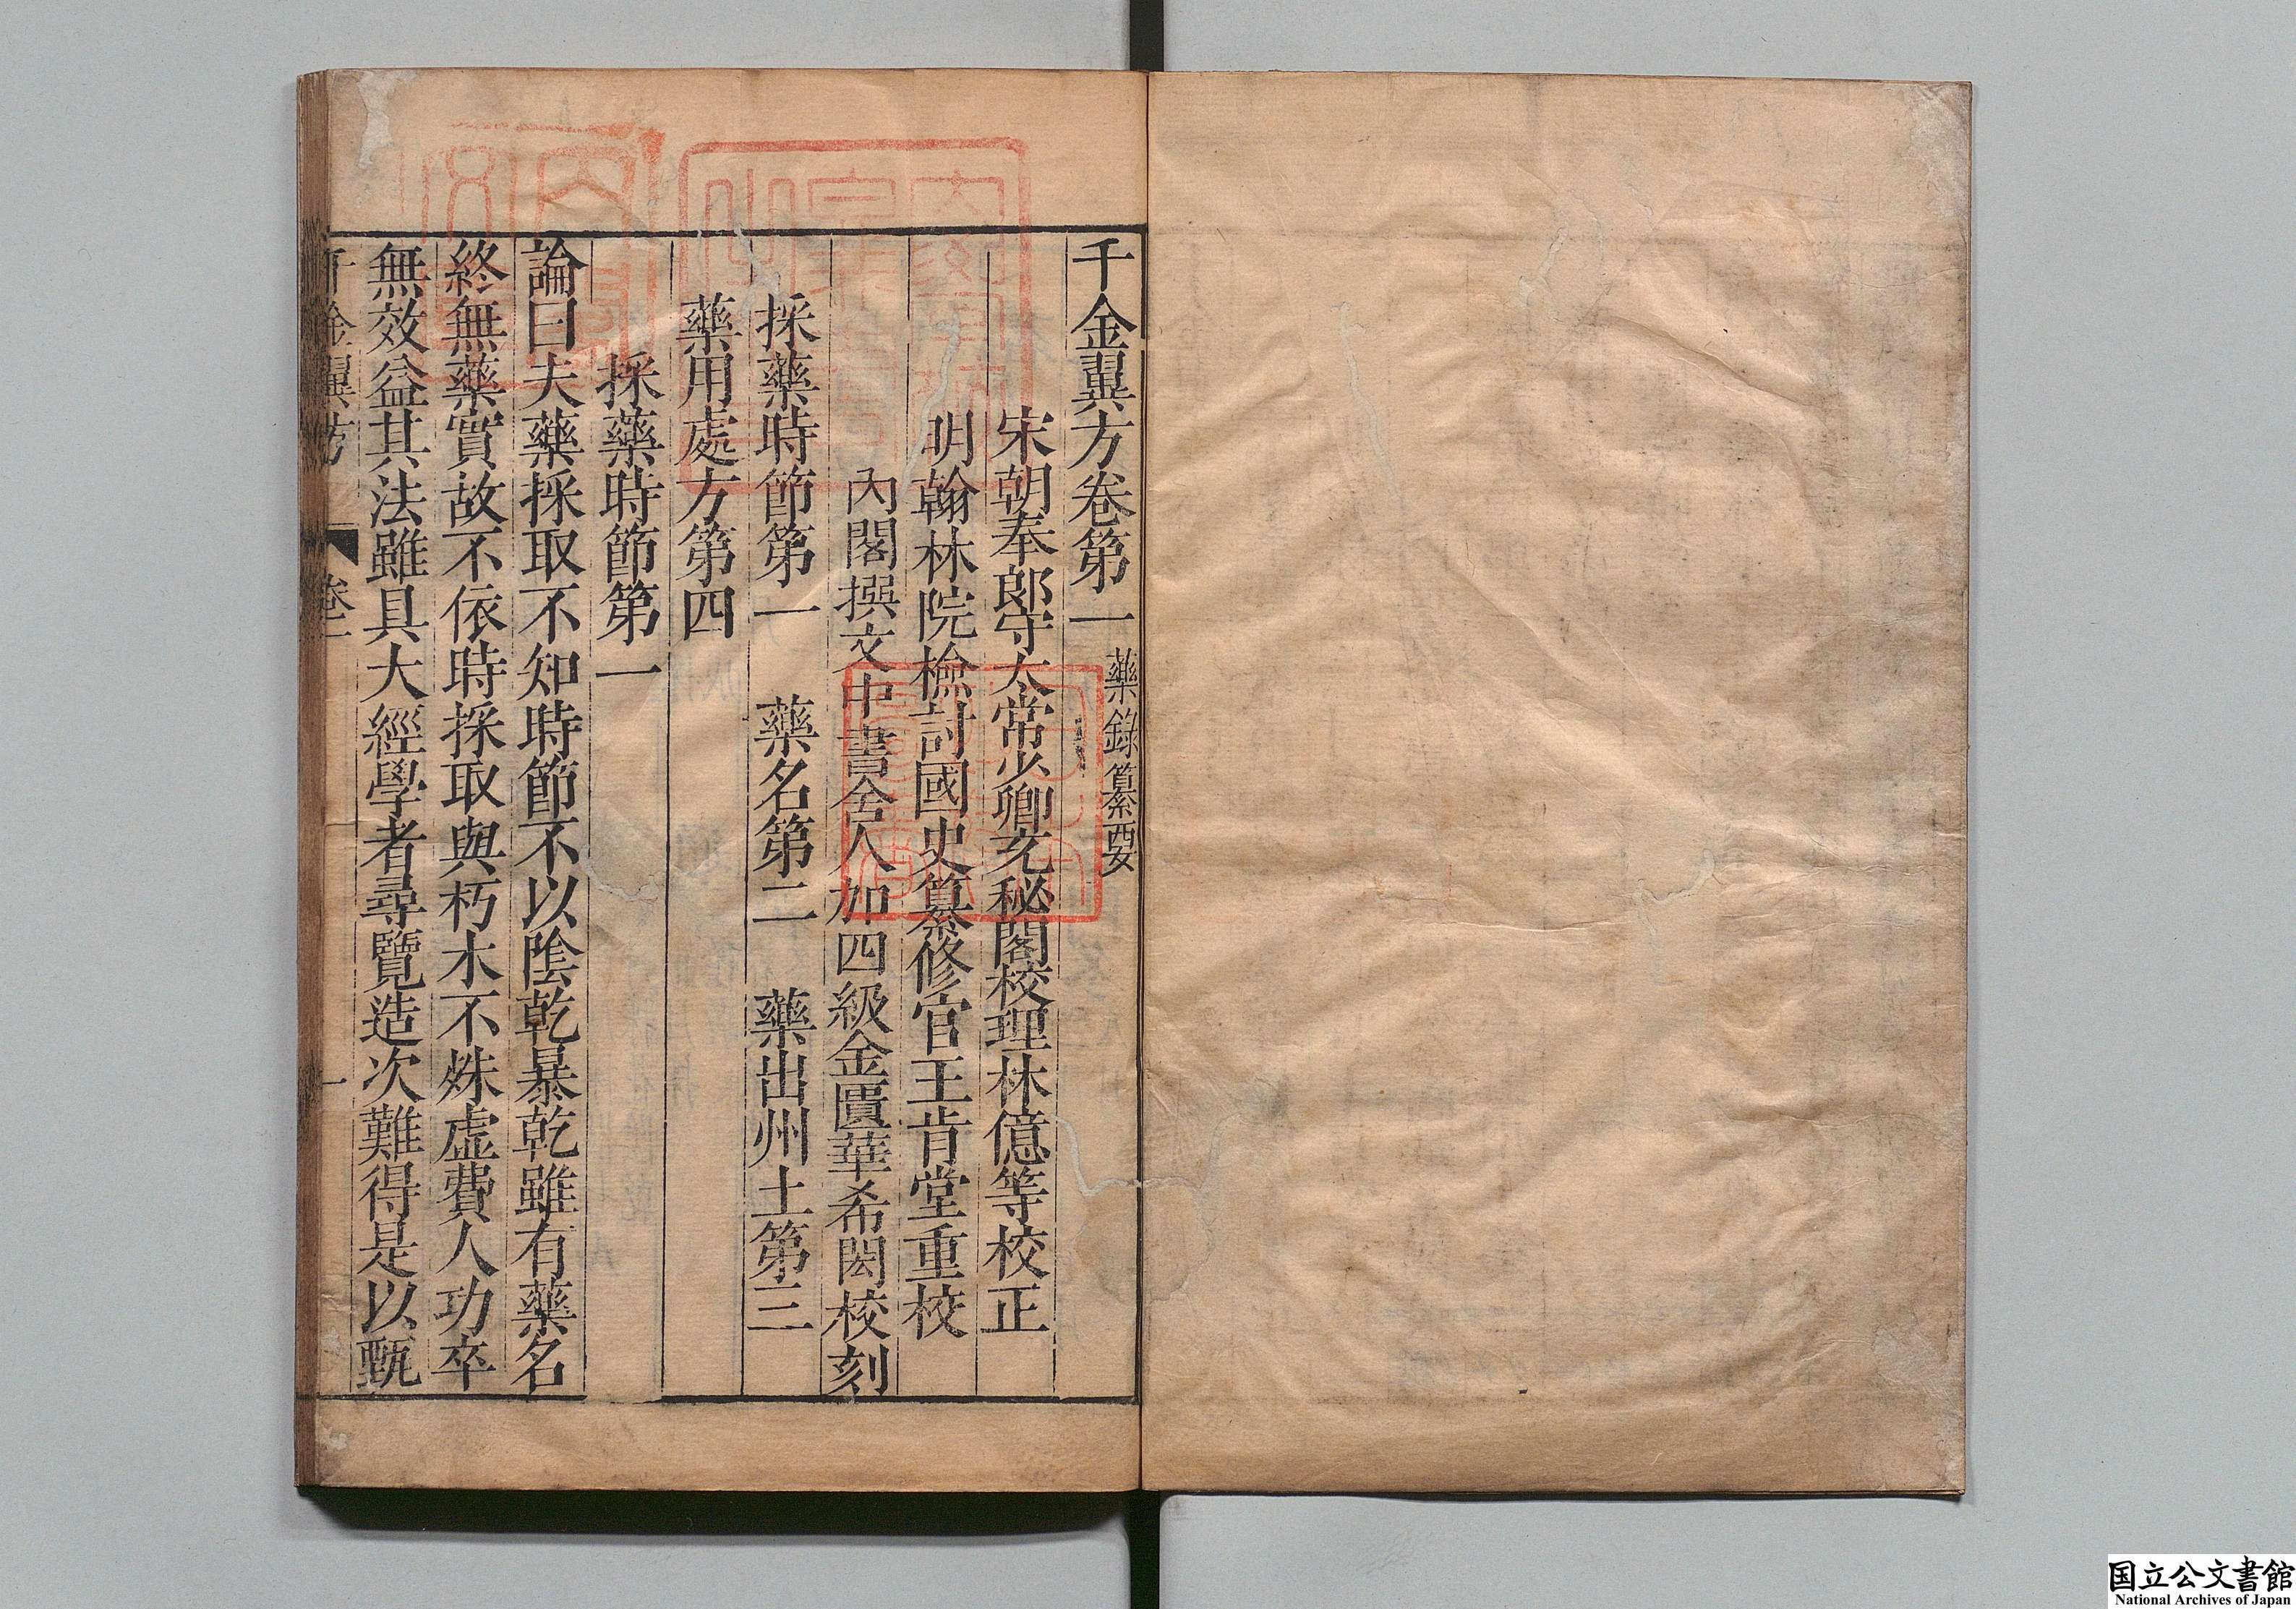 千金翼方卷第一 藥錄纂要
宋朝奉郎守太常少卿充秘閣校理林億等校正
明翰林院檢討國史纂修官王肯堂重校
內閣撰文中書舍人加四級金匱華希閎校刻
採藥時節第一 藥名第二 藥出州土第三
藥用處方第四
採藥時節第一
論曰夫藥採取不知時節不以陰乾暴乾雖有藥名
終無藥實故不依時採取與朽木不殊虛費人功卒
無效益其法雖具大經學者尋覽造次難得是以甄
千金翼方 卷一 一
国立公文書館
National Archives of Japan